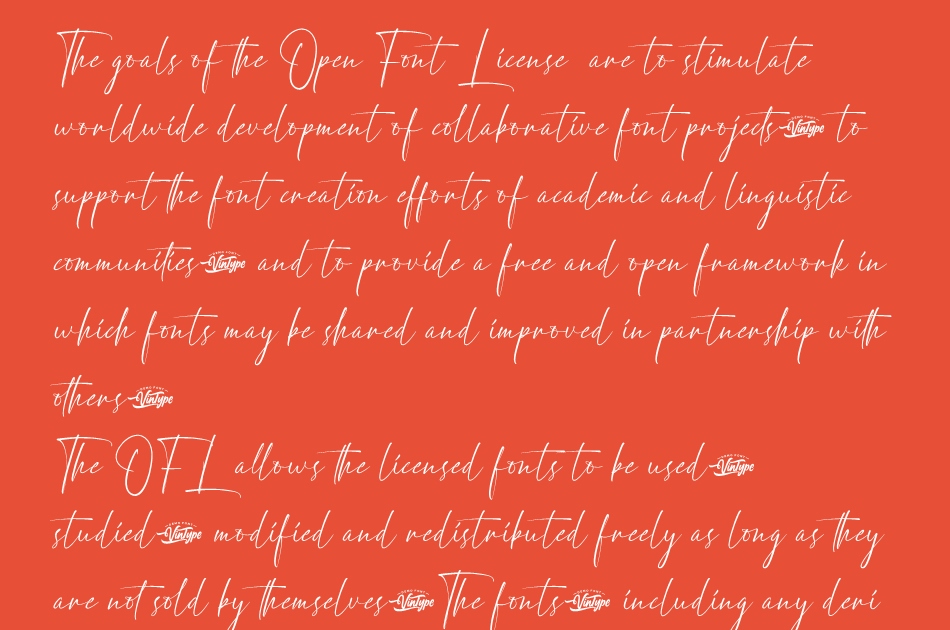 The goals of the Open Font License are to stimulate
worldwide development of collaborative font projects DEMO FONT VinType to
support the font creation efforts of academic and linguistic
communities DEMO FONT VinType and to provide a free and open framework in
which fonts may be shared and improved in partnership with
others DEMO FONT VinType
The OFL allows the licensed fonts to be used DEMO FONT VinType
studied DEMO FONT VinType modified and redistributed freely as long as they
are not sold by themselves DEMO FONT VinType The fonts DEMO FONT VinType including any deri